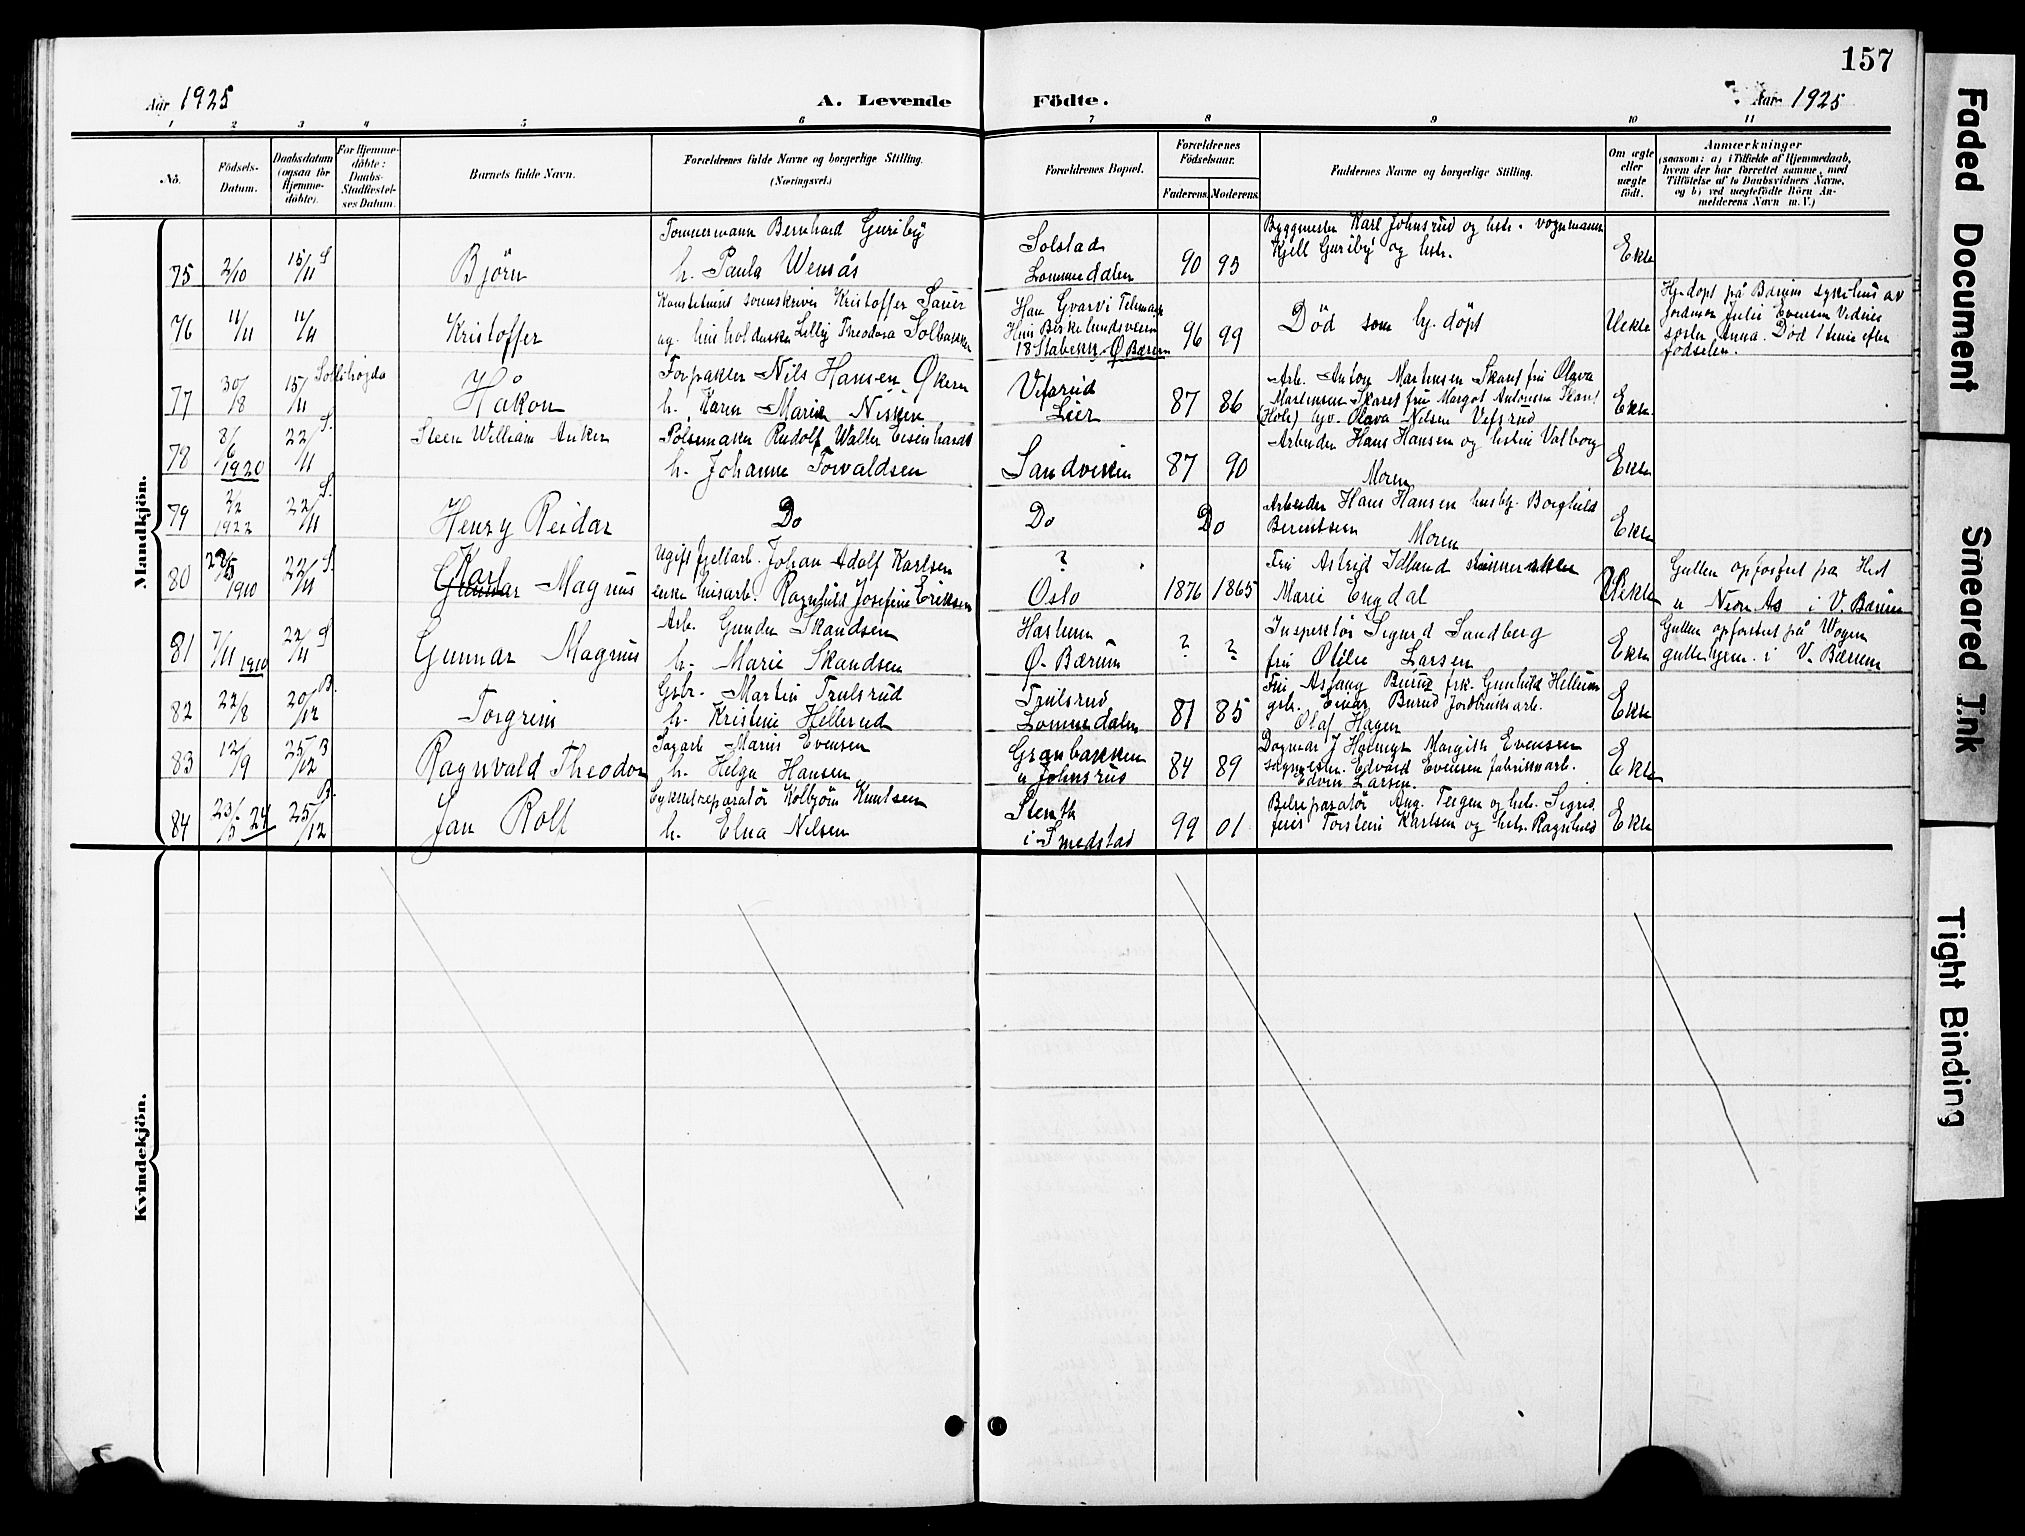 157
Aar 1925
A. Levende
Födte.
Aar 1925
1 2 3 4 5 6 7 8 9 10 11
No.
Födsels-
Datum.
Daabsdatum
(ogsaa for
Hjemme-
döbte).
For Hjemme-
döbte:
Daabs-
Stadfæstel-
ses Datum.
Barnets fulde Navn.
Forældrenes fulde Navne og borgerlige Stilling.
(Næringsvei.)
Forældrenes Bopæl.
Forældrenes
Födselsaar.
Faderens. Moderens.
Faddernes Navne og borgerlige Stilling.
Om ægte
eller
uægte
födt.
Anmærkninger
(saasom: a) i Tilfælde af Hjemmedaab,
hvem der har forrettet samme, med
Tilföielse af to Daabsvidners Navne,
og b) ved uægtefödte Börn An-
melderens Navn m. V.)
Mandkjön.
75 2/10 15/11 S
Björn
Tømmermann Bernhard Guriby
h. Paula Wensås
Solstad
Lommedalen
90 95
Byggmester Karl Johnsrud og hstr. vognmann
Kjell Guriby og hstr.
Ekte
76 11/11 11/11
Kristoffer
Kristoffer Sauer
ug. husholderske Lilly Theodora Solbakken
Han Gvarv i Telemark
Hun Birkelundsveien
18 Stabekk Ø. Bærum
96 99
Død som hj. døpt
Uekte
Hj. døpt på Bærums sykehus av
søster Anna. Død 1 time efter
fødselen.
77 30/8 15/11 Sollihøgda
Håkon
Forpakter Nils Hansen Økern
h. Karen Marie Nilsen
Lier
87 86
Arb. Anton Martinsen Skaret fru Olava
Martinsen Skaret fru Margot Antonsen Skaret
(Hole) Olava Nilsen Vefsrud
Ekte
78 8/6 1920 22/11 S.
Steen William Anker
Pølsemaker Rudolf Walter Eisenhardt
h. Johanne Torvaldsen
Sandviken
87 90
Arbeider Hans Hansen og hstru Valborg
Moren
Ekte
79 2/2 1922 22/11 S.
Henry Reidar
Do
Do
Do
Arbeider Hans Hansen Borghild
Berentsen Moren
Ekte
80 1910 22/11 S.
Karl
Gunnar Magnus
Ugift fjellarb. Johan Adolf Karlsen
enke husarb. Ragnhild Josefine Eriksen
?
Oslo
1876 1865
Fru Astrid Idlund
Marie Engdal
Uekte
Gutten opfostret på
i V. Bærum
81 7/11 1910 22/11 S
Gunnar Magnus
Arb. Gunder Skandsen
h. Marie Skandsen
Haslum
Ø. Bærum
? ?
Inspektør Sigurd Sandberg
fru Otilie Larsen
Ekte
Gutten opfostret på Wøyen
guttehjem i V. Bærum
82 22/8 20/12 B.
Torgrim
Gbr. Martin Trulsrud
h. Kristine Hellerud
Trulsrud
Lommedalen
81 85
Fru Aslaug Burud frk. Gunhild Hellum
gbr. Einar Burud Jordbruksarb.
Olaf Hagen
Ekte
83 12/9 25/12 B
Ragnvald Theodor
Sagarb Marius Evensen
h. Helga Hansen
Granbakken
u Johnsrud
84 89
Dagmar J Margith Evensen
sagmester. Edvard Evensen fabrikkarb.
Edvin Larsen.
Ekte
84 23/5 24 25/12 B.
Jan Rolf
Sykkelreparatør Kolbjørn Knutsen
h. Elna Nilsen
i Smedstad
99 01
Bilreparatør Aug. Teigen og hstr. Sigrid
Torstein Karlsen og hstr. Ragnhild
Ekte
Kvindekjön.
Faded Document
Smeared Ink
Tight Binding